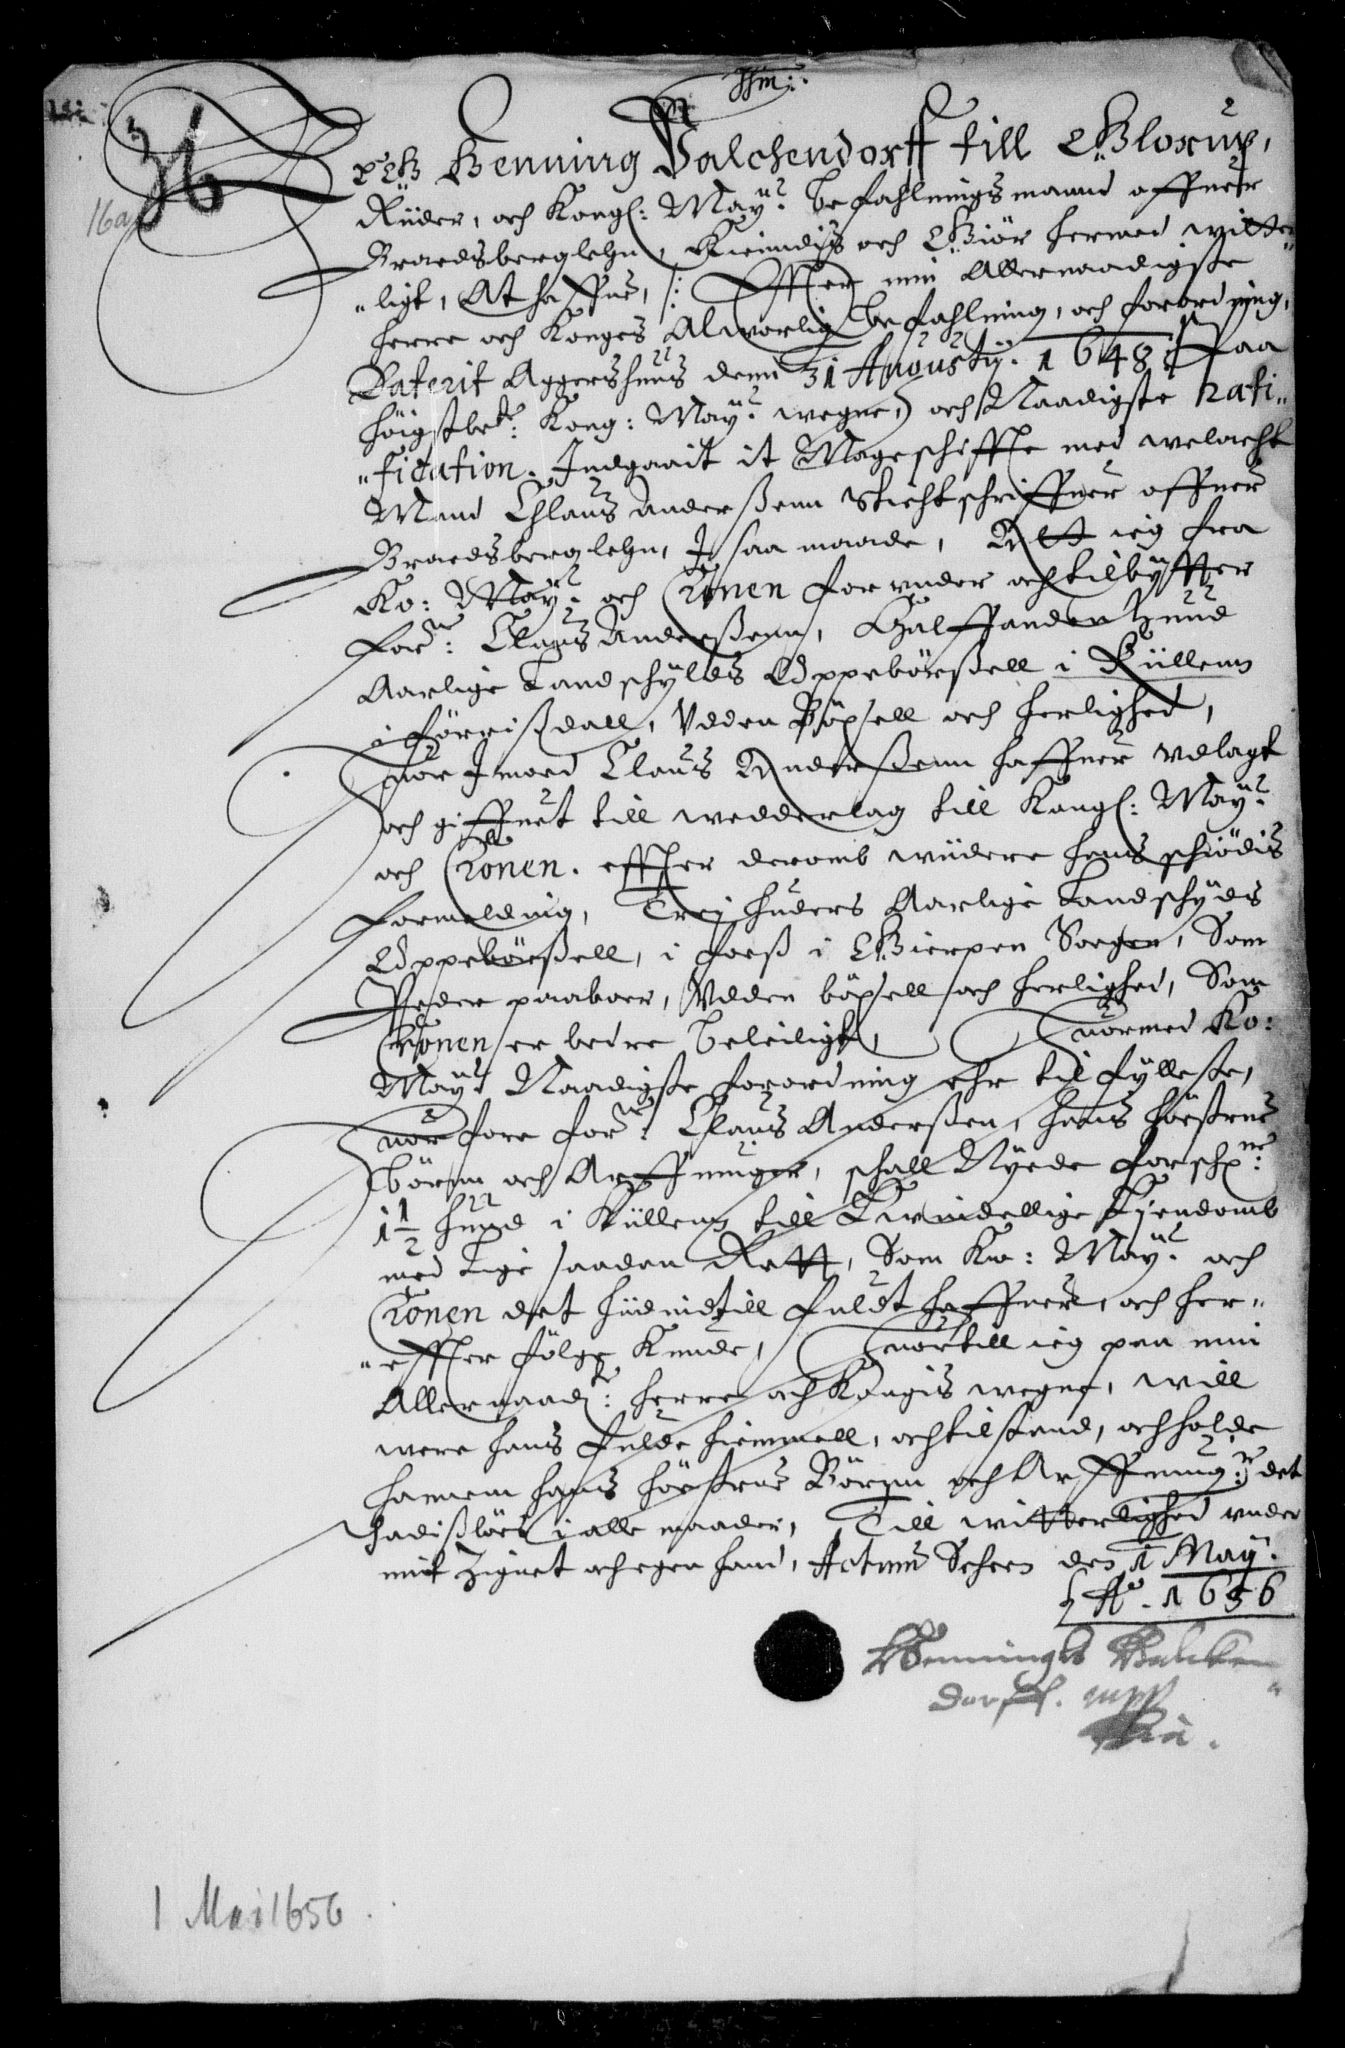 36
16a
Jeg Henning Valchendorff till Glorup,
Ridder, och Kongl: Mayts befahlningsmannd offuer
Bradsberglehn, Kiendis och Giör hermed witter
"ligt, At haffue, Effter min Allernaadigste
herre och Konges Alworlig befahlning, och forordning,
Daterit Aggershuus denn 31 Augustij. 1648. Paa
höigstbete: Kong: Mayts wegne, och Naadigste rati"
"fication. Indgaait it Mageschiffte med welacht
Mand Claus Anderßenn Stichtschriffuer offuer
Bradsberglehn, J saa maade, Att ieg fra
Ko: Mayts och Cronen forunder och tilbytter
forne: Claus Anderßenn, Halffanden hund
Aarlige Landschylds Oppebörßell i Küllenn
i Förrißdall, Uden Böxsell och herlighed,
Huor Jmoed Claus Anderßenn haffuer udlagt
och giffuet till wedderlag till Kongl: Mayts
och Cronen. effter deromb widere hans schiödis
formelding, Trej huders Aarlige Landschylds
Oppebörßell, i foß i Gierpen Sogen, Som
Peder paaboer, Uden böxsell och herlighed, Som
Cronen er bedre beleiligt, Huormed Ko:
Mayts Naadigste forordning ehr til fylleste,
Huorfore forne: Claus Anderßen, hans höstrue
Börnn och Arffuinger, schall Nyde forschne:
1½ hund i Küllenn till Ewindellige Eiendomb
med Lige saadan Rett, Som Ko: Mayts och
Cronen det hiidindtill fuldt haffuer, och her"
"effter fölge Kunde, Huortill ieg paa min
Allernaadste: herre och Kongis wegne, will
were hans fulde hiemmell, och tilstand, och holde
hannem hans höstrue Börnn och Arffuinger det
schadißlöes i alle maader, Till witterlighed under
mit Zignet och egen hand, Actum Scheen den 1 May.
Ao. 1656
Henningh Valcken
dorff. mpp
1 Mai 1656